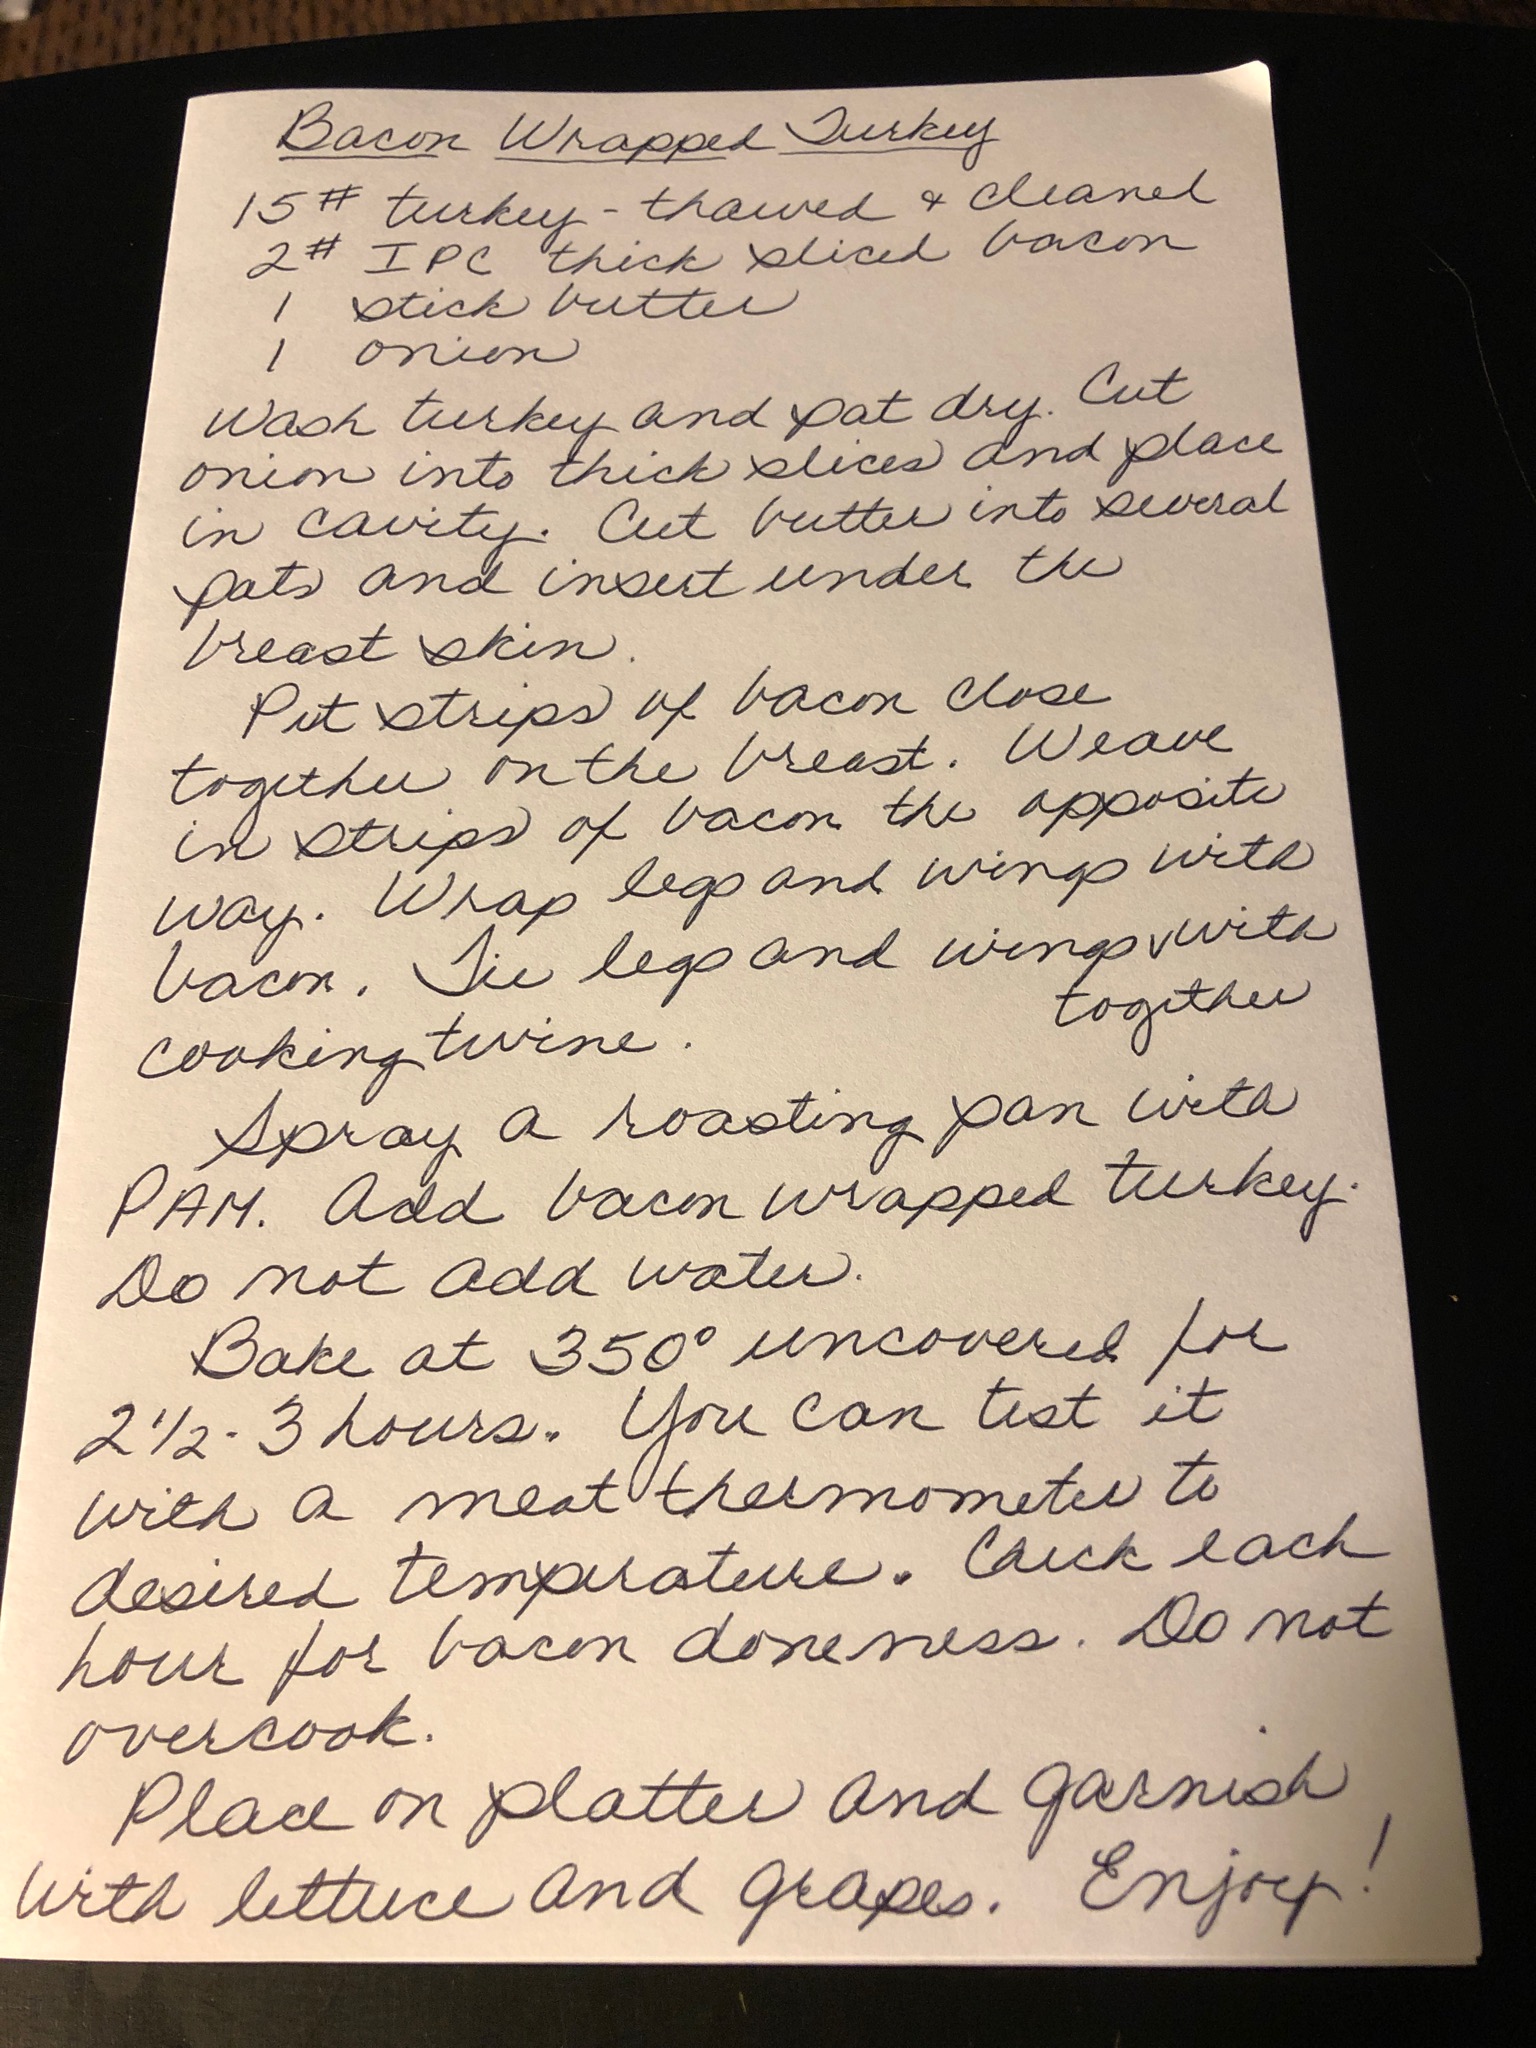 Bacon Wrapped Turkey
15# turkey - thawed & cleaned
2# IPC thick sliced bacon
1 stick butter
1 onion
Wash turkey and pat dry. Cut
onion into thick slices and place
in cavity. Cut butter into several
pats and insert under the
breast skin.
Put strips of bacon close
together on the breast. Weave
in strips of bacon the opposite
way. Wrap legs and wings with
bacon. Tie legs and wings ˅ with
together
cooking twine.
Spray a roasting pan with
PAM. Add bacon wrapped turkey.
Do not add water.
Bake at 350° uncovered for
2 1/2 - 3 hours. You can test it
with a meat thermometer to
desired temperature. Check each
hour for bacon doneness. Do not
overcook.
Place on platter and garnish
with lettuce and grapes. Enjoy!